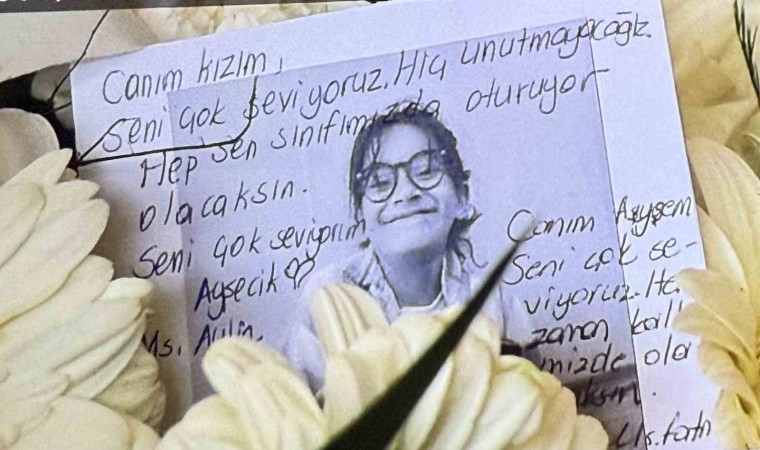 Canım kızım,
Seni çok seviyoruz. Hiç unutmayacağız.
Hep sen sınıfımızda oturuyor
olacaksın.
Seni çok seviyorum
Ayşecik
Ms. Aylin.
Canım Ayşem
Seni çok se-
viyoruz. He
zaman kal
imizde ola
ksın.